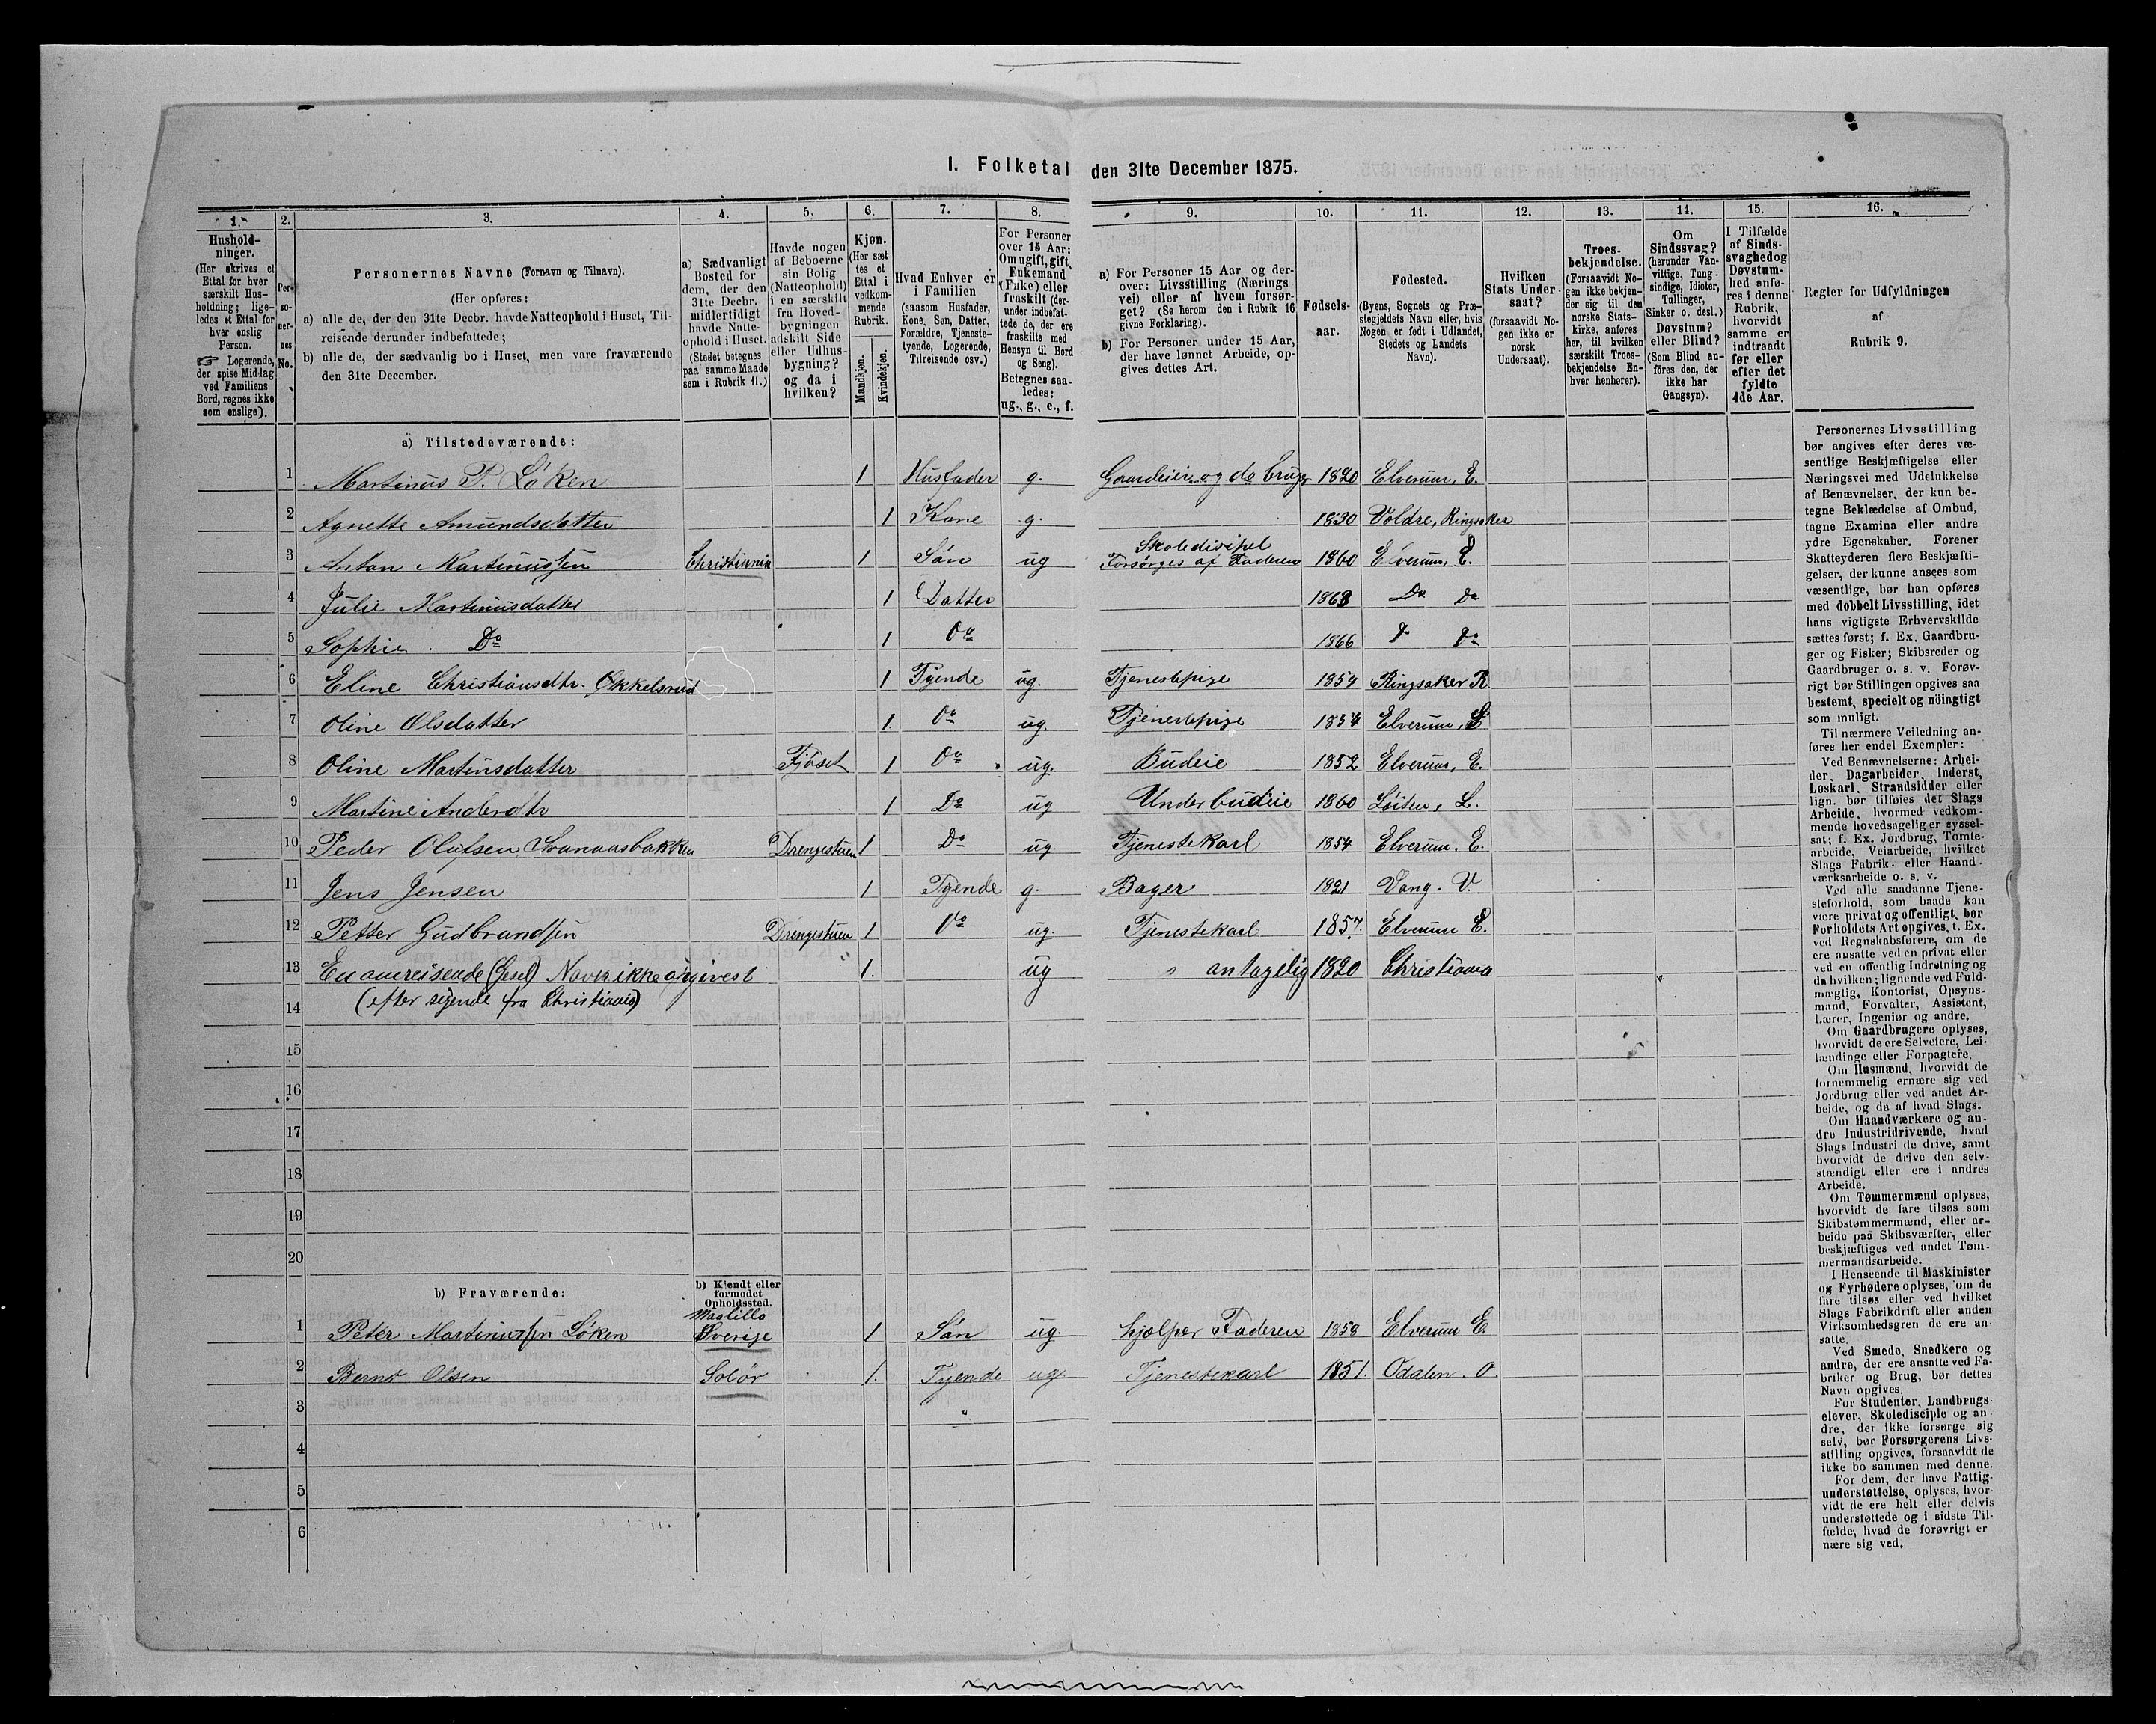 I. Folketal den 31te December 1875.
1. 2. 3. 4. 5. 6. 7. 8. 9. 10. 11. 12. 13. 14. 15. 16.
Hushold-
ninger.
(Her skrives et
Ettal for hver
særskilt Hus-
holdning; lige-
ledes et Ettal for
hver enslig
Person.
☞ Logerende,
der spise Middag
ved Familiens
Bord, regnes ikke
som enslige).
Per-
so-
ner-
nes
No.
Personernes Navne (Fornavn og Tilnavn).
(Her opføres:
a) alle de, der den 31te Decbr. havde Natteophold i Huset, Til-
reisende derunder indbefattede;
b) alle de, der sædvanlig bo i Huset, men vare fraværende
den 31te December.
a) Sædvanligt
Bosted for
dem, der den
31te Decbr.
midlertidigt
havde Natte-
ophold i Huset.
(Stedet betegnes
paa samme Maade
som i Rubrik 11.)
Havde nogen
af Beboerne
sin Bolig
(Natteophold)
i en særskilt
fra Hoved-
bygningen
adskilt Side
eller Udhus-
bygning?
og da i
hvilken?
Kjøn.
(Her sæt
tes et
Ettal i
vedkom-
mende
Rubrik.
Mandkjøn.
Kvindekjøn.
Hvad Enhver er
i Familien
(saasom Husfader,
Kone, Søn, Datter,
Forældre, Tjeneste-
tyende, Logerende,
Tilreisende osv.)
For Personer
over 15 Aar:
Om ugift, gift,
Enkemand
(Enke) eller
fraskilt (der-
under indbefat-
tede de, der ere
fraskilte med
Hensyn til Bord
og Seng).
Betegnes saa-
ledes:
ug., g., e., f.
a) For Personer 15 Aar og der-
over: Livsstilling (Nærings
vei) eller af hvem forsør-
get? (Se herom den i Rubrik 16
givne Forklaring).
b) For Personer under 15 Aar,
der have lønnet Arbeide, op-
gives dettes Art.
Fødsels-
aar.
Fødested.
(Byens, Sognets og Præ-
stegjeldets Navn eller, hvis
Nogen er født i Udlandet,
Stedets og Landets
Navn).
Hvilken
Stats Under-
saat?
(forsaavidt No-
gen ikke er
norsk
Undersaat).
Troes-
bekjendelse.
(Forsaavidt No-
gen ikke bekjen-
der sig til den
norske Stats-
kirke, anføres
her, til hvilken
særskilt Troes-
bekjendelse En-
hver henhører).
Om
Sindssvag?
(herunder Van-
vittige, Tung-
sindige, Idioter,
Tullinger,
Sinker o. desl.)
Døvstum?
eller Blind?
(Som Blind an-
føres den, der
ikke har
Gangsyn).
I Tilfælde
af Sinds-
svaghed og
Døvstum-
hed anfø-
res i denne
Rubrik,
hvorvidt
samme er
indtraadt
før eller
efter det
fyldte
4de Aar.
Regler for Udfyldningen
af
Rubrik 9.
a) Tilstedeværende:
1 Martinus P. Løken 1 Husfader g. Gaardeier og do bruger 1820 Elverum, E.
2 Agnette Amundsdatter 1 Kone g. 1830 Voldre, Ringsaker
3 Anton Martinussen Christiania 1 Søn ug Skoledisipel Forsørges af Faderen 1860 Elverum, E.
4 Julie Martinusdatter 1 Datter 1863 Do Do
5 Sophie Do 1 Do 1866 Do Do
6 Eline Christiansdtr. Økkelsrud 1 Tyende ug. Tjenestepige 1859 Ringsaker R.
7 Oline Olsdatter 1 Do ug. Tjenestepige 1854 Elverum, E
8 Oline Martinsdatter Fjøset 1 Do ug. Budeie 1852 Elverum, E.
9 Martine Andersdtr 1 Do ug Underbudeie 1860 Løiten, L.
10 Peder Olafsen Svanaasbakken Drengestuen 1 Do ug Tjenestekarl 1854 Elverum. E.
11 Jens Jensen 1 Tyende g. Bager 1821 Vang. V.
12 Petter Gudbrandsen Drengestuen 1 Do ug. Tjenestekarl 1857. Elverum E.
13 En omreisende (Gesel) Navn ikke opgivest 1. ug antagelig 1820 Christiania
14 (efter sigende fra Christiania)
15
16
17
18
19
20
b) Fraværende:
b) Kjendt eller
formodet
Opholdssted.
1 Peter Martinussen Løken Sverige 1 Søn ug. hjælper Faderen 1858 Elverum E.
2 Bernt Olsen Solør 1. Tyende ug Tjenestekarl 1851. Odalen. O.
3
4
5
6
Personernes Livsstilling
bør angives efter deres væ-
sentlige Beskjæftigelse eller
Næringsvei med Udelukkelse
af Benævnelser, der kun be-
tegne Beklædelse af Ombud,
tagne Examina eller andre
ydre Egenskaber. Forener
Skatteyderen flere Beskjæfti-
gelser, der kunne ansees som
væsentlige, bør han opføres
med dobbelt Livsstilling, idet
hans vigtigste Erhvervskilde
sættes først; f. Ex. Gaardbru-
ger og Fisker; Skibsreder og
Gaardbruger o. s. v. Forøv-
rigt bør Stillingen opgives saa
bestemt, specielt og nöiagtigt
som muligt.
Til nærmere Veiledning an-
føres her endel Exempler:
Ved Benævnelserne: Arbei-
der, Dagarbeider, Inderst,
Løskarl, Strandsidder eller
lign. bør tilføies det Slags
Arbeide, hvormed vedkom-
mende hovedsagelig er syssel-
sat; f. Ex. Jordbrug, Tomte-
arbeide, Veiarbeide, hvilket
Slags Fabrik- eller Haand-
værksarbeide o. s. v.
Ved alle saadanne Tjene-
steforhold, som baade kan
være privat og offentligt, bør
Forholdets Art opgives, t. Ex.
ved Regnskabsførere, om de
ere ansatte ved en privat eller
ved en offentlig Indretning og
da hvilken; lignende ved Fuld-
mægtig, Kontorist, Opsyns-
mand, Forvalter, Assistent,
Lærer, Ingeniør og andre.
Om Gaardbrugere oplyses,
hvorvidt de ere Selveiere, Lei-
lændinge eller Forpagtere.
Om Husmænd, hvorvidt de
fornemmelig ernære sig ved
Jordbrug eller ved andet Ar-
beide, og da af hvad Slags.
Om Haandværkere og an-
dre Industridrivende, hvad
Slags Industri de drive, samt
hvorvidt de drive den selv-
stændigt eller ere i andres
Arbeide.
Om Tømmermænd oplyses,
hvorvidt de fare tilsøs som
Skibstømmermænd, eller ar-
beide paa Skibsværfter, eller
beskjæftiges ved andet Tøm-
mermandsarbeide.
I Henseende til Maskinister
og Fyrbødere oplyses, om de
fare tilsøs eller ved hvilket
Slags Fabrikdrift eller anden
Virksomhedsgren de ere an-
satte.
Ved Smede, Snedkere og
andre, der ere ansatte ved Fa-
briker og Brug, bør dettes
Navn opgives.
For Studenter, Landbrugs-
elever, Skoledisciple og an-
dre, der ikke forsørge sig
selv, bør Forsørgerens Livs-
stilling opgives, forsaavidt de
ikke bo sammen med denne.
For dem, der have Fattig-
understøttelse, oplyses, hvor-
vidt de ere helt eller delvis
understøttede og i sidste Til-
fælde, hvad de forøvrigt er
nære sig ved.